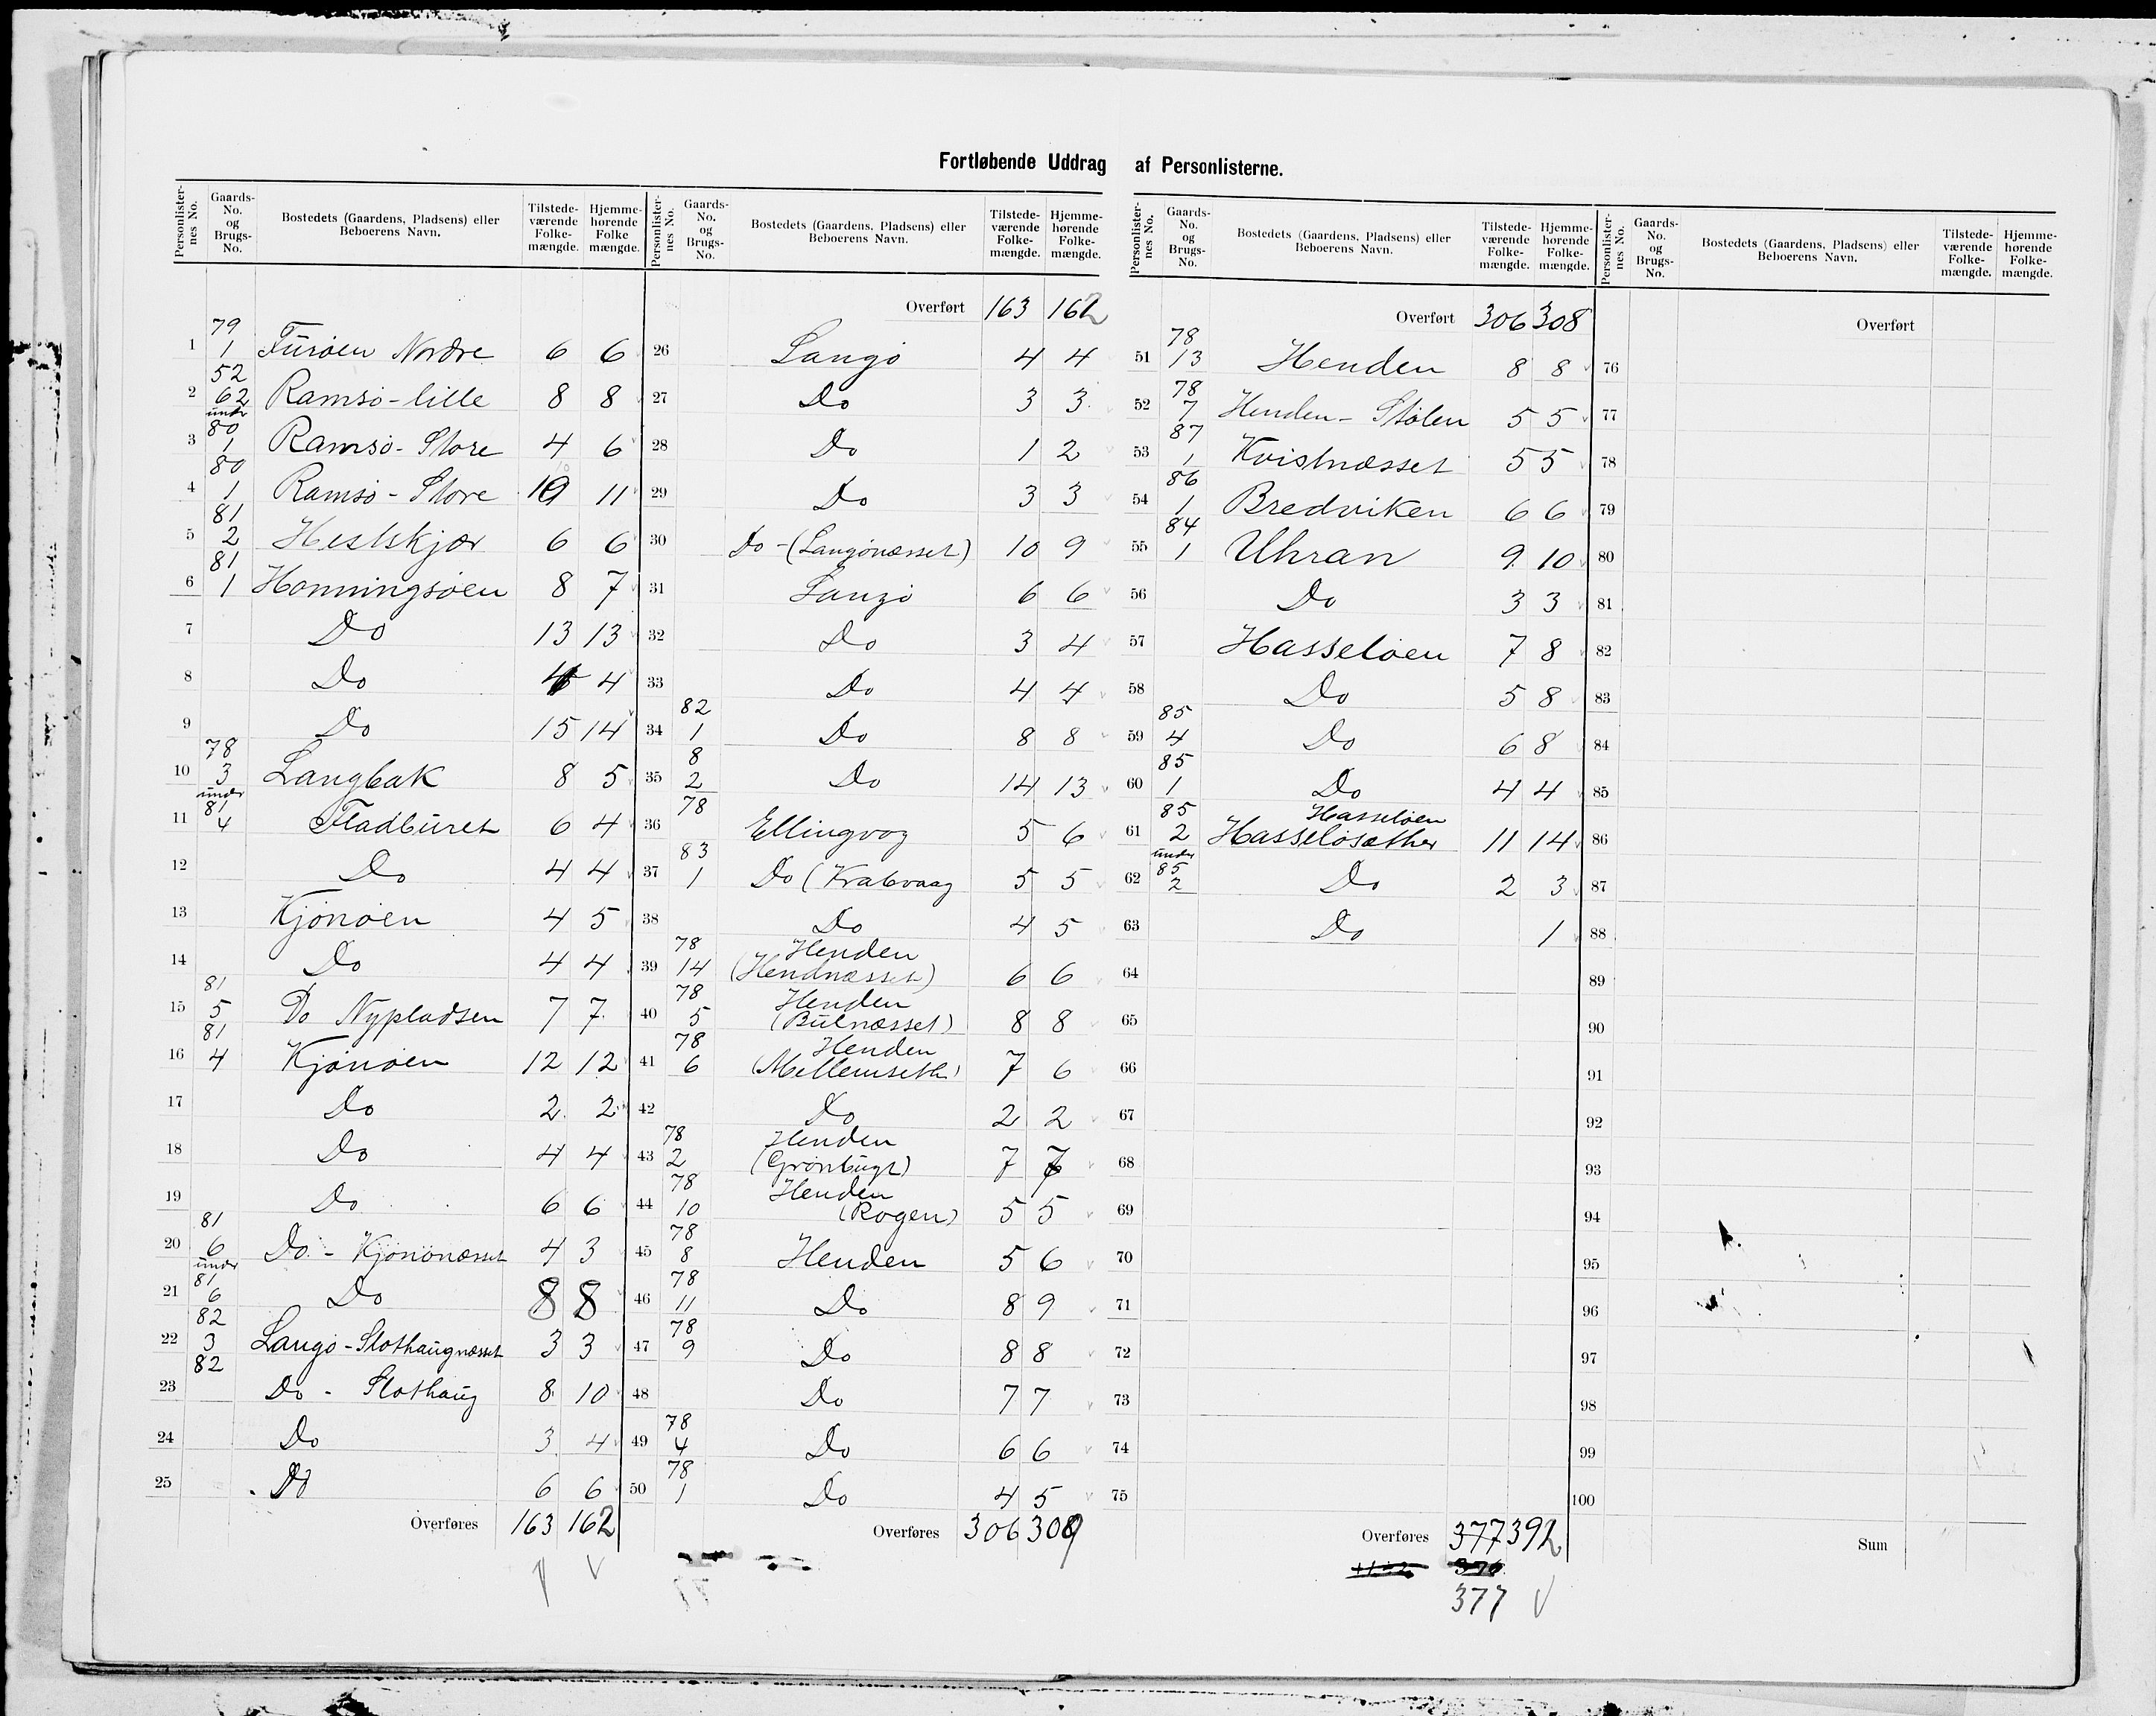 Fortløbende Uddrag af Personlisterne.
Personlister-nes No. Gaards-No. og Brugs-No. Bostedets (Gaardens, Pladsens) eller Beboerens Navn. Tilstede-værende Folke-mængde. Hjemme-hørende Folke mængde.
79
1 1 Fürøen Nordre 6 6
52
2 62 Ramsø-lille 8 8
under 80
3 1 Ramsø-Store 4 6
80
4 1 Ramsø-Store 10 11
81
5 2 Hestskjær 6 6
81
6 1 Honningsøen 8 7
7 Do 13 13
8 Do 4 4
9 Do 15 14
78
10 3 Langbak 8 5
under 81
11 4 Fladbüret 6 4
12 Do 4 4
13 Kjönöen 4 5
14 Do 4 4
81
15 5 Do Nypladsen 7 7
81
16 4 Kjönöen 12 12
17 Do 2 2
18 Do 4 4
19 Do 6 6
81
20 6 Do - Kjönönæsset 4 3
under 81
21 6 Do 8 8
82
22 3 Langø-Slothaugnæsset 3 3
82
23 Do - Slothaug 8 10
24 Do 3 4
25 Do 6 6
Overføres 163 162
Personlister-nes No. Gaards-No. og Brugs-No. Bostedets (Gaardens, Pladsens) eller Beboerens Navn. Tilstede-værende Folke-mængde. Hjemme-hørende Folke-mængde.
Overført 163 162
26 Langø 4 4
27 Do 3 3
28 Do 1 2
29 Do 3 3
30 Do-(Langønæsset) 10 9
31 Langø 6 6
32 Do 3 4
33 Do 4 4
82
34 1 Do 8 8
8
35 2 Do 14 13
78
36 Ellingvog 5 6
83
37 1 Do (Krabvaag 5 5
38 Do 4 5
78 Henden
39 14 (Hendnæsset) 6 6
78 Henden
40 5 (Bülnæsset) 8 8
78 Henden
41 6 (Mellemseth) 7 6
42 Do 2 2
78 Henden
43 2 (Grönbugt) 7 7
78 Henden
44 10 (Rogen) 5 5
78
45 8 Henden 5 6
78
46 11 Do 8 9
78
47 9 Do 8 8
48 Do 7 7
78
49 4 Do 6 6
78
50 1 Do 4 5
Overføres 306 309
Personlister-nes No. Gaards-No. og Brugs-No. Bostedets (Gaardens, Pladsens) eller Beboerens Navn. Tilstede-værende Folke-mængde. Hjemme-hørende Folke-mængde.
Overført 306 308
78
51 13 Henden 8 8
78
52 7 Henden-Stölen 5 5
87
53 1 Kvistnæsset 5 5
86
54 1 Bredviken 6 6
84
55 1 Uhran 9 10
56 Do 3 3
57 Hasseløen 7 8
58 Do 5 8
85
59 4 Do 6 8
85
60 1 Do 4 4
85 Hasseløen
61 2 Hasseløsæther 11 14
under 85
62 2 Do 2 3
63 Do 1
64
65
66
67
68
69
70
71
72
73
74
75
Overføres 377 392
377
Personlister-nes No. Gaards-No. og Brugs-No. Bostedets (Gaardens, Pladsens) eller Beboerens Navn. Tilstede-værende Folke-mængde. Hjemme-hørende Folke-mængde.
Overført
76
77
78
79
80
81
82
83
84
85
86
87
88
89
90
91
92
93
94
95
96
97
98
99
100
Sum